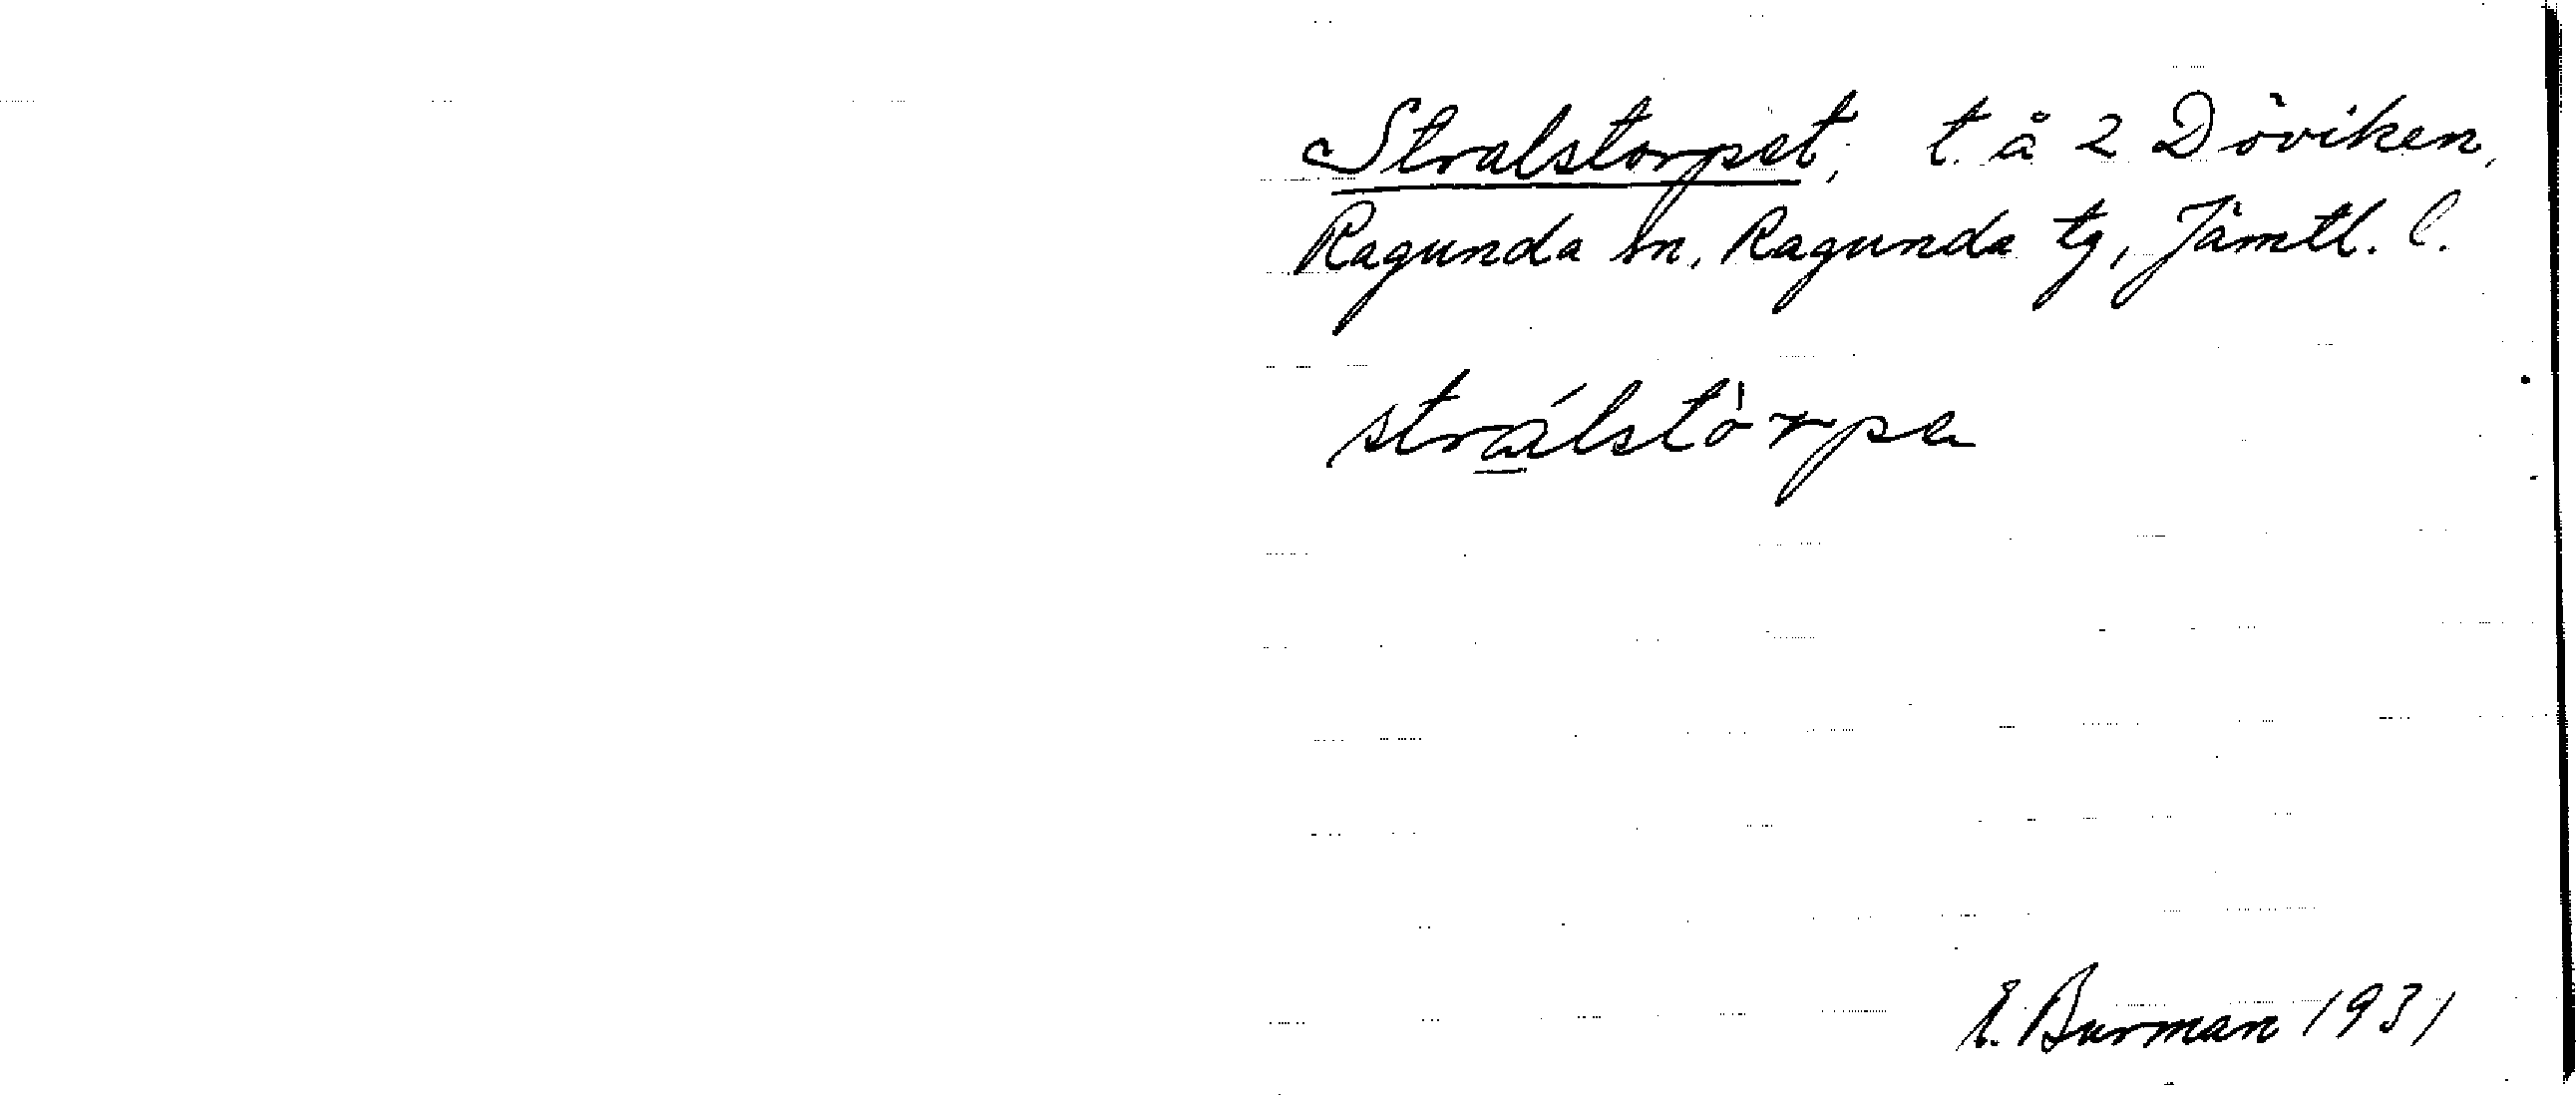 Stralstorpet, t. å 2 Döviken,
Ragunda sn, Ragunda tg, Jämtl. l.
strálstòrpa
E. Burman 1931